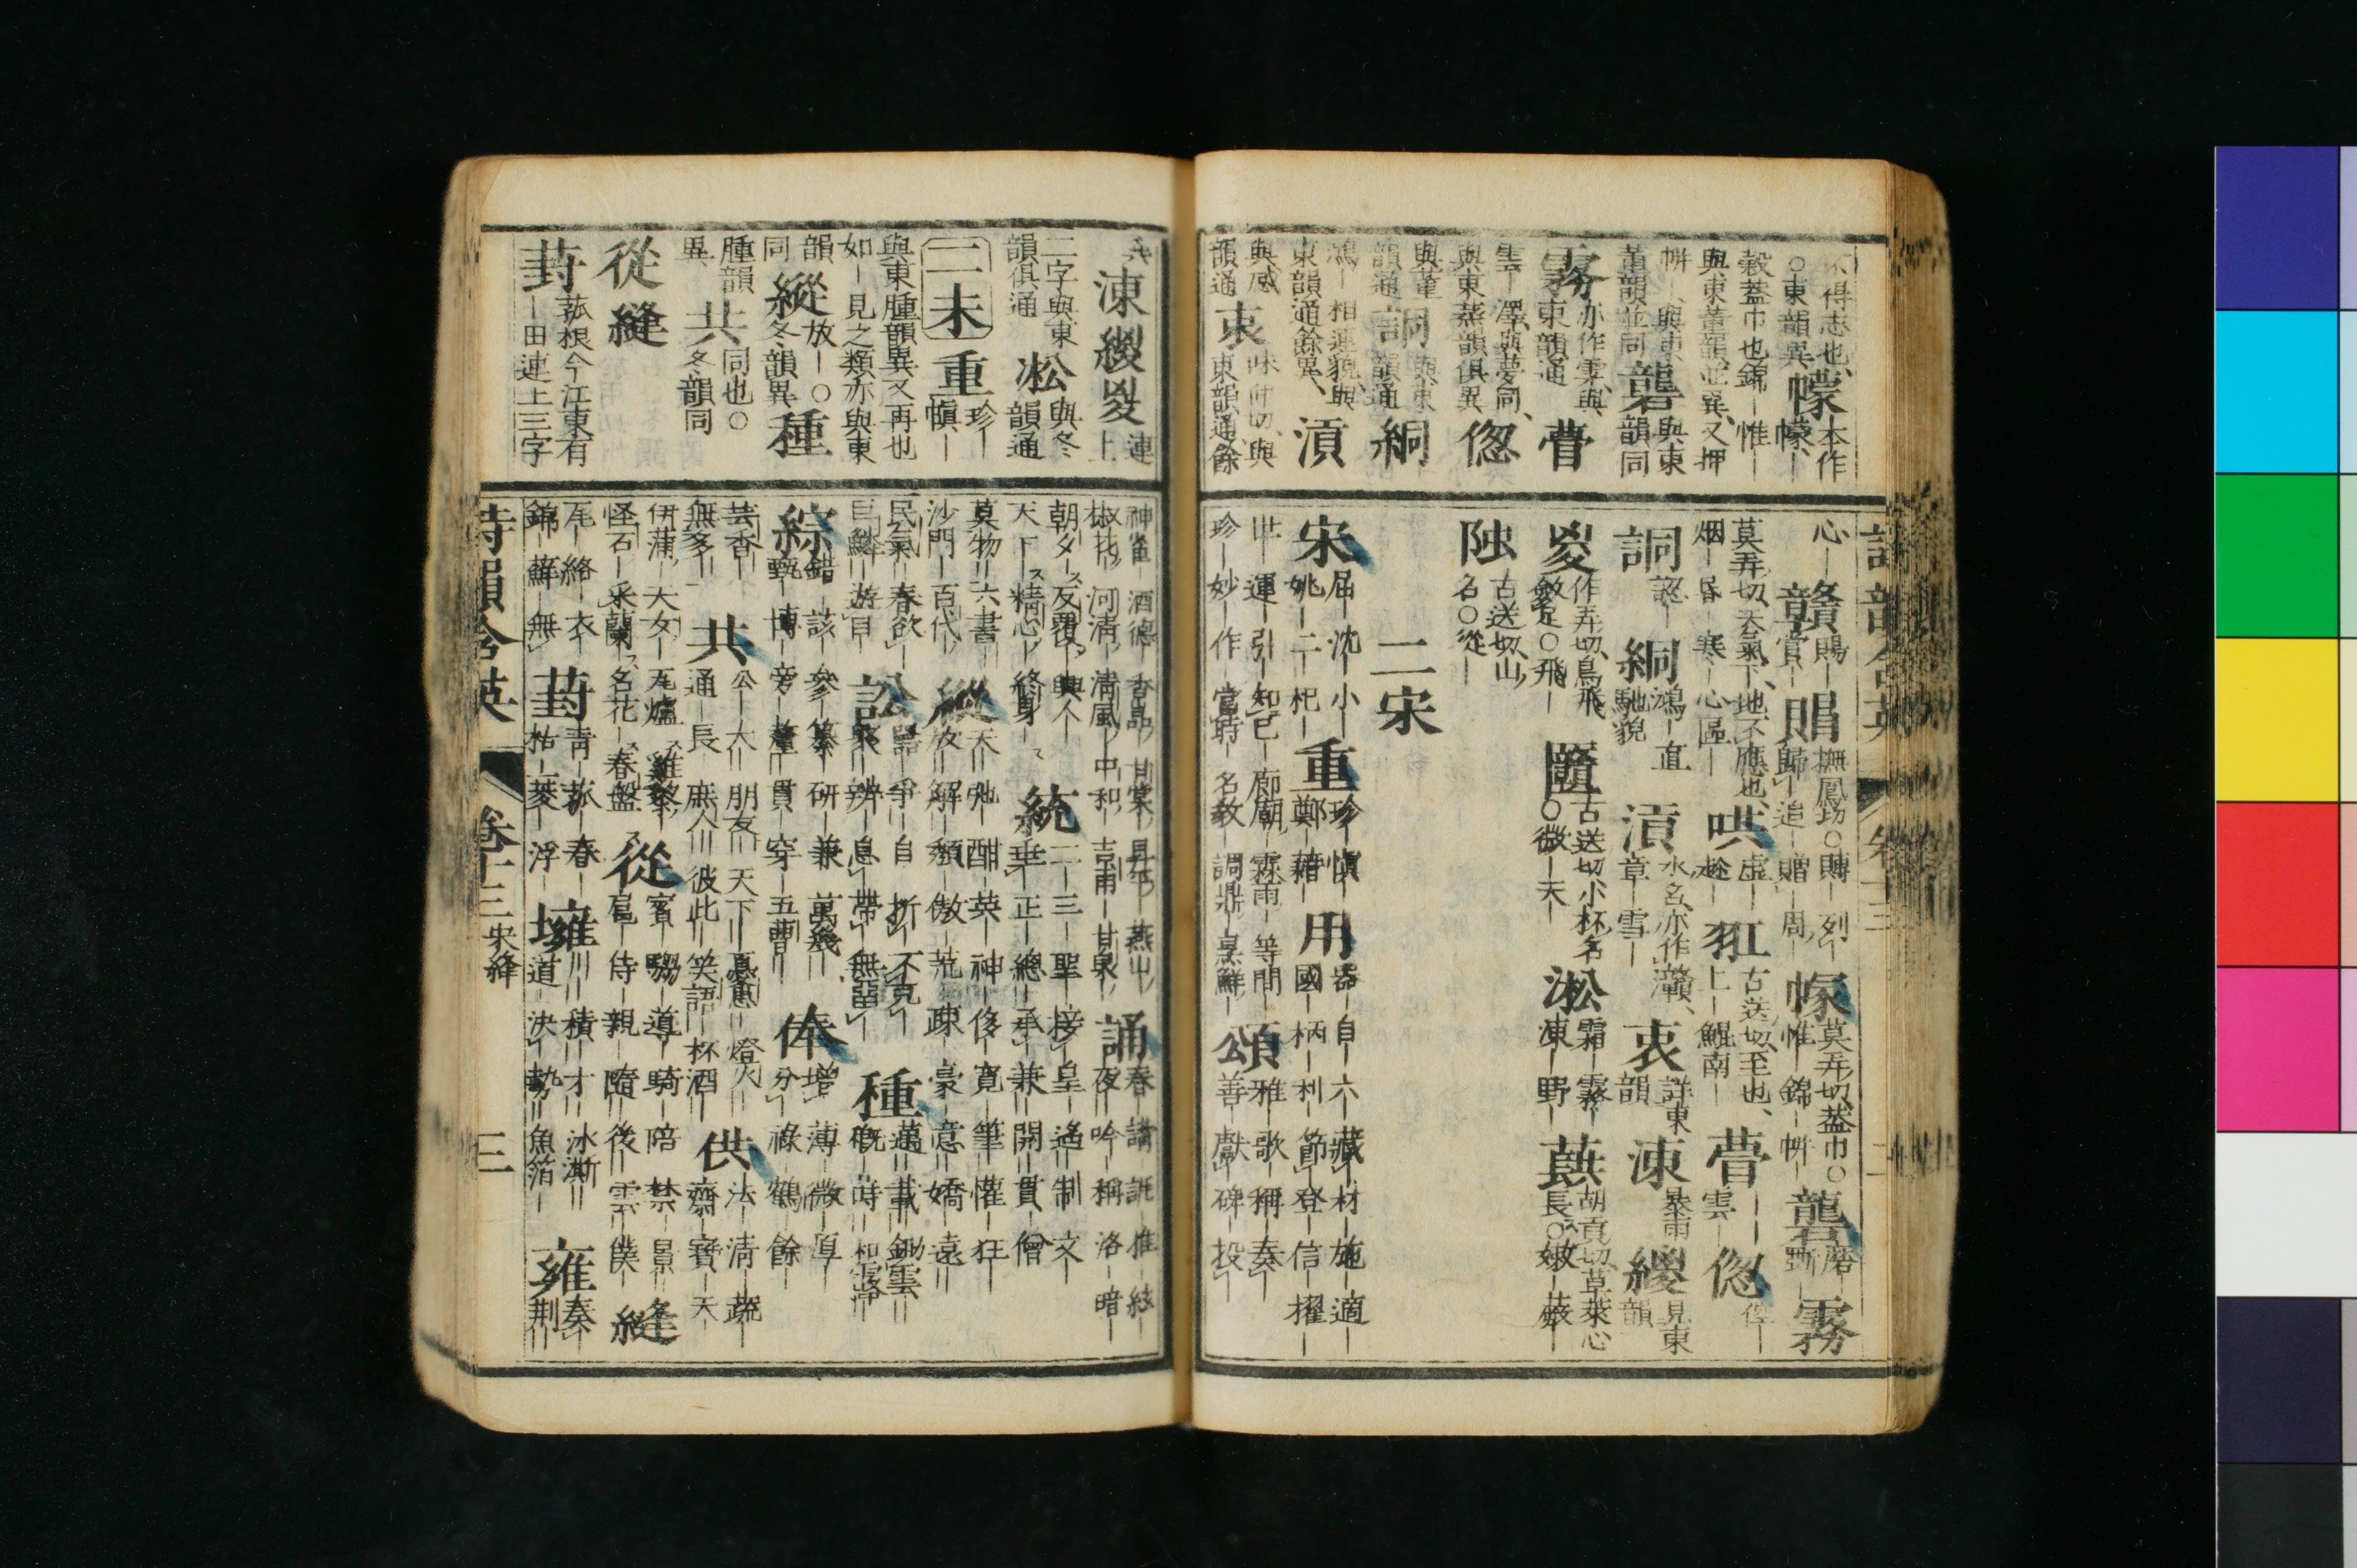 不得志也、幪本作
○東韻異、幪、幪ー
縠蓋巾也錦ー惟ー
與東董韻並異、又押
帡ー、與東
董韻並同礱與東韻同
霧亦作雺、與東韻通瞢
雲ー澤、與夢同、
與東蒸韻俱異偬
與董韻通詷與東韻通絧
鴻ー相連貌、與
東韻通餘異、澒
與感韻通衷味仲切、與東韻通、餘
詩韻含英
心ー贛賜ー賞ー賵撫鳳切○賻ー列ー歸ー追ー贈ー周ー幪莫弄切、蓋巾○惟ー錦ー帡ー礱磨ー斲ー霧
莫弄切、天氣下、地不應也、
烟ー昏ー寒ー心區ー哄虛ー𧼮ー羾古送切、至也、上ー鯤南ー瞢雲ー偬倥ー
詷認ー絧鴻ー直馳貌澒水名、亦作灨、章ー雪ー衷詳東韻涷暴雨緵見東韻
㚇作弄切、鳥飛斂足○飛ー𠥵古送切、小杯名○微ー天ー淞霜ー霧ー凍ー野ー蕻胡貢切、草萊心長○嫩ー菝ー
䧆古送切、山名○從ー
二宋
宋屈ー沈ー小ー姚ー二ー杞ー重珍ー愼ー鄭ー藉ー用器ー自ー六ー藏ー材ー施ー適ー國ー柄ー利ー節ー登ー信ー擢ー
世ー運ー引ー知己ー廊廟ー霖雨ー等閒ー
珍ー妙ー作ー當時ー名教ー調鼎ー烹鮮ー頌雅ー歌ー稱ー奏ー善ー獻ー碑ー投ー
涷緵㚇連上
二字與東韻俱通淞與冬韻通
二未重珍ー愼ー
與東腫韻異又再也
如ー見之類亦與東
韻同縱放ー○冬韻異種
腫韻異共同也○冬韻同
從縫
葑菰根今江東有ー田連上三字
神雀ー酒德ー香品ー甘棠ー昇平ー燕山ー誦春ー讀ー詆ー惟ー絃ー
椒花ー河淸ー淸風ー中和ー吉甫ー甘泉ー夜ー吟ー稱ー洛ー暗ー
朝夕ー反覆ー輿人ー統二ー三ー聖ー接ー皇ー遙ー制ー文ー
天下ー精心ー終身ー垂ー正ー總ー承ー兼ー開ー貫ー僧ー
莫物ー六書ー縱天ー弛ー酣ー英ー神ー侈ー寬ー筆ー懽ー狂ー
沙門ー百代ー放ー解ー頹ー傲ー荒ー疎ー豪ー意ー嬌ー遠ー
民氣ー春欲ー訟嚚ー爭ー自ー折ー不克ー種邁ー載ー鋤雲ー
巨鱗ー遊目ー聚ー辨ー息ー帶ー無留ー穊ー蒔ー和露ー
綜錯ー該ー參ー纂ー研ー兼ー萬幾ー俸增ー薄ー微ー厚ー
甄ー博ー旁ー釐ー貫ー穿ー五曹ー分ー祿ー鶴ー餘ー
芸香ー共公ー大ー朋友ー天下ー憂患ー燈火ー供法ー淸ー蔬ー
無多ー通ー長ー庶人ー彼此ー笑語ー杯酒ー齋ー寶ー天ー
伊蒲ー天女ー瓦爐ー雞黍ー從賓ー騶ー導ー騎ー陪ー禁ー景ー縫
怪石ー采蘭ー名花ー春盤ー扈ー侍ー親ー隨ー後ー雲ー僕ー
尾ー絡ー衣ー葑靑ー菰ー春ー壅ー積ー才ー冰澌ー雍奏ー
錦ー蘚ー無ー枯ー菱ー浮ー道ー決ー勢ー魚箔ー荆ー
詩韻含英 卷十三宋絳 三